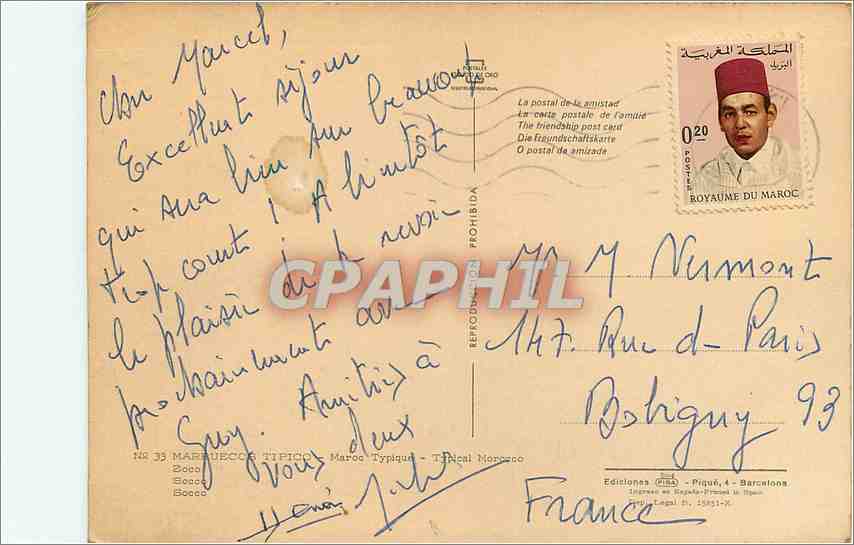 Cher Marcel,
Excellent séjour
qui sera bien sur beaucoup
trop court ! A bientôt
le plaisir de te revoir
prochainement avec
Guy. Amitiés à
vous deux
POSTALES
La postal de la amistad
La carte postale de l'amitié
The friendship post card
Die Freundschaftskarte
O postal da amizade
REPRODUCCIÓN PROHIBIDA
المملكة المغربية
البريد
0.20
POSTES
ROYAUME DU MAROC
CPAPHIL
Mr M. Vermont
147. Rue de Paris
Bobigny 93
France
Nº 33 MARRUECOS TIPICO - Maroc Typique - Typical Morocco
Zoco
Socco
Socco
Ediciones PISA - Piqué, 4 - Barcelona
Impreso en España-Printed in Spain
Dep. Legal B. 15851-X